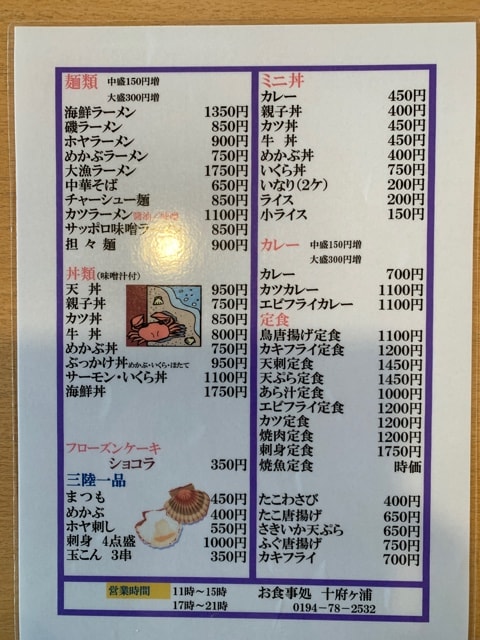 麺類 中盛150円増
大盛300円増
海鮮ラーメン 1350円
磯ラーメン 850円
ホヤラーメン 900円
めかぶラーメン 750円
大漁ラーメン 1750円
中華そば 650円
チャーシュー麺 850円
カツラーメン 1100円
サッポロ味噌ラー 850円
担々麺 900円
丼類(味噌汁付)
天 丼 950円
親子丼 750円
カツ丼 850円
牛 丼 800円
めかぶ丼 750円
ぶっかけ丼 めかぶ・いくら・ほたて 950円
サーモン・いくら丼 1100円
海鮮丼 1750円
フローズンケーキ
ショコラ 350円
三陸一品
まつも 450円
めかぶ 400円
ホヤ刺し 550円
刺身 4点盛 1000円
玉こん 3串 350円
ミニ丼
カレー 450円
親子丼 400円
カツ丼 450円
牛 丼 450円
めかぶ丼 400円
いくら丼 750円
いなり(2ケ) 200円
ライス 200円
小ライス 150円
カレー 中盛150円増
大盛300円増
カレー 700円
カツカレー 1100円
エビフライカレー 1100円
定食
鳥唐揚げ定食 1100円
カキフライ定食 1200円
天刺定食 1450円
天ぷら定食 1450円
あら汁定食 1000円
エビフライ定食 1200円
カツ定食 1200円
焼肉定食 1200円
刺身定食 1750円
焼魚定食 時価
たこわさび 400円
たこ唐揚げ 650円
さきいか天ぷら 650円
ふぐ唐揚げ 750円
カキフライ 700円
営業時間 11時～15時
17時～21時
お食事処 十府ヶ浦
0194-78-2532